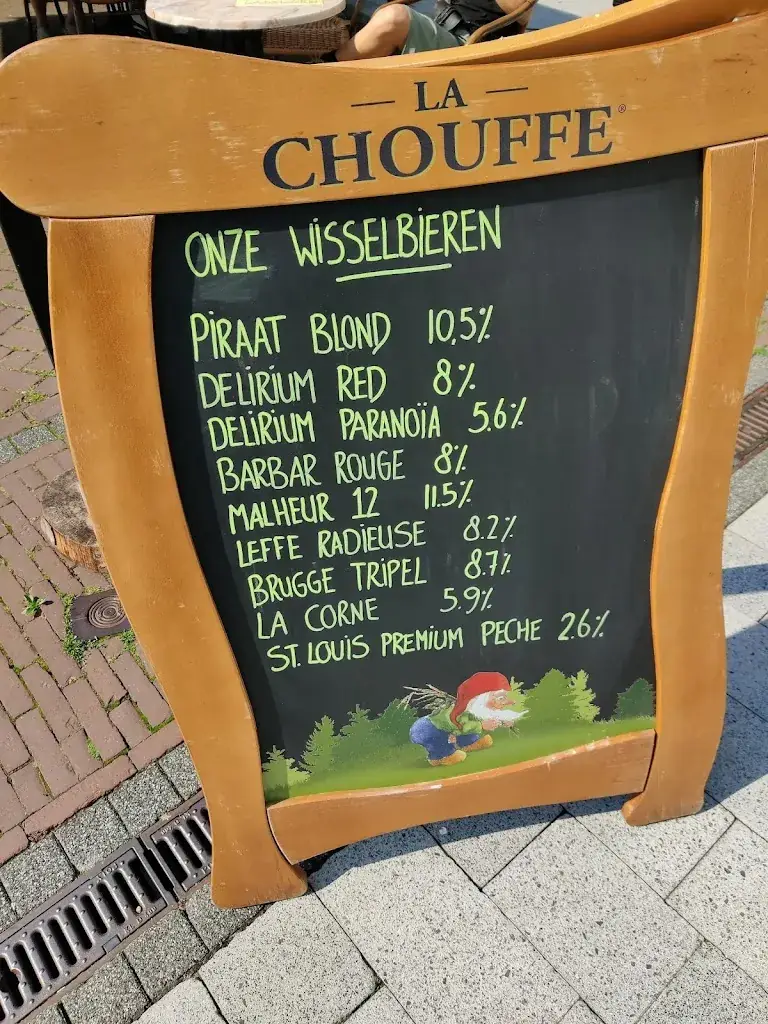 LA
CHOUFFE®
ONZE WISSELBIEREN
PIRAAT BLOND 10,5%
DELIRIUM RED 8%
DELIRIUM PARANOÏA 5.6%
BARBAR ROUGE 8%
MALHEUR 12 11.5%
LEFFE RADIEUSE 8.2%
BRUGGE TRIPEL 8.7%
LA CORNE 5.9%
ST. LOUIS PREMIUM PECHE 2.6%